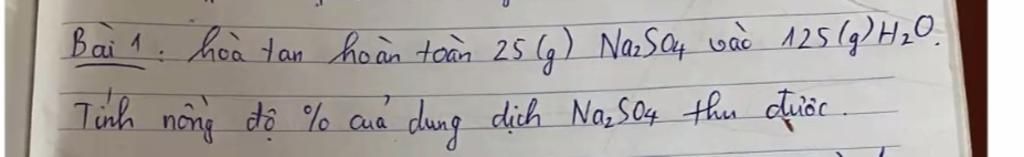 Bài 1: hoà tan hoàn toàn 25 (g) Na₂SO₄ vào 125 (g) H₂O.
Tính nồng độ % của dung dịch Na₂SO₄ thu được.